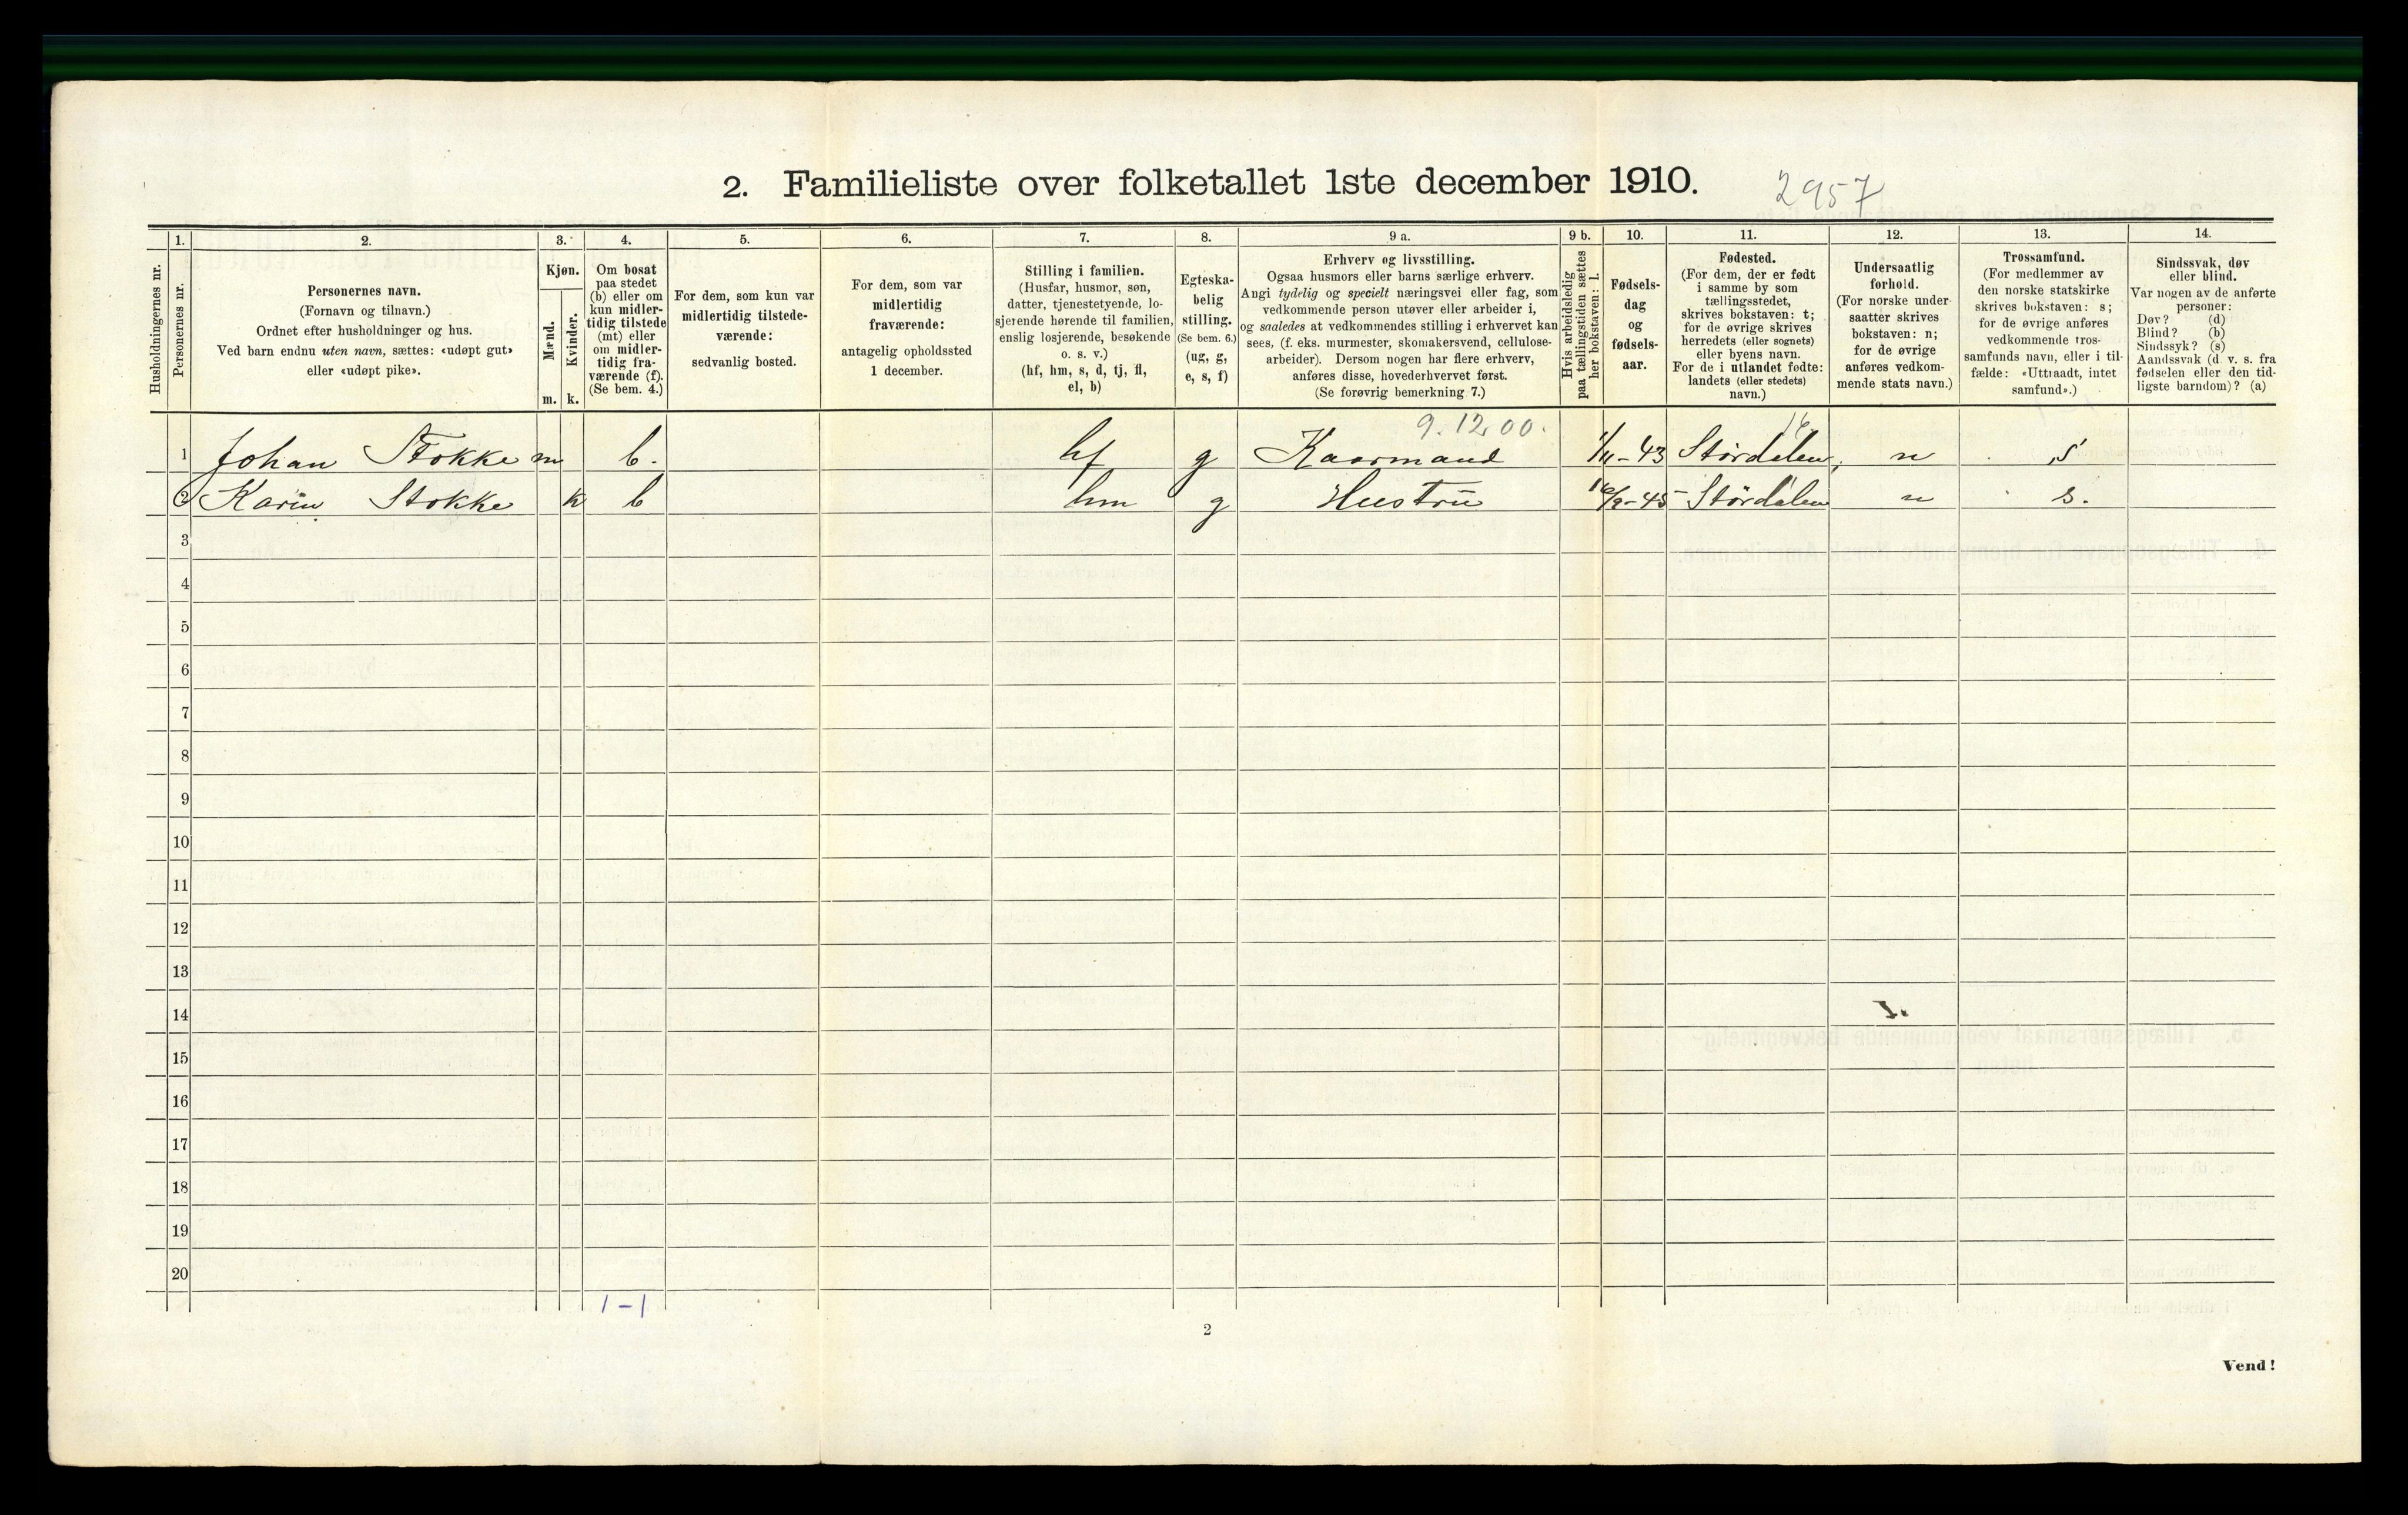 2. Familieliste over folketallet 1ste december 1910.
2957
Husholdningernes nr.
1.
Personernes nr.
2.
Personernes navn.
(Fornavn og tilnavn.)
Ordnet efter husholdninger og hus.
Ved barn endnu uten navn, sættes: «udøpt gut»
eller «udøpt pike».
3.
Kjøn.
Mænd.
Kvinder.
m. k.
4.
Om bosat
paa stedet
(b) eller om
kun midler-
tidig tilstede
(mt) eller
om midler-
tidig fra-
værende (f).
(Se bem. 4.)
5.
For dem, som kun var
midlertidig tilstede-
værende:
sedvanlig bosted.
6.
For dem, som var
midlertidig
fraværende:
antagelig opholdssted
1 december.
7.
Stilling i familien.
(Husfar, husmor, søn,
datter, tjenestetyende, lo-
sjerende hørende til familien,
enslig losjerende, besøkende
o. s. v.)
(hf, hm, s, d, tj, fl,
el, b)
8.
Egteska-
belig
stilling.
(Se bem. 6.)
(ug, g,
e, s, f)
9 a.
Erhverv og livsstilling.
Ogsaa husmors eller barns særlige erhverv.
Angi tydelig og specielt næringsvei eller fag, som
vedkommende person utøver eller arbeider i,
og saaledes at vedkommendes stilling i erhvervet kan
sees, (f. eks. murmester, skomakersvend, cellulose-
arbeider). Dersom nogen har flere erhverv,
anføres disse, hovederhvervet først.
(Se forøvrig bemerkning 7.)
9 b.
Hvis arbeidsledig
paa tællingstiden sættes
her bokstaven: l.
10.
Fødsels-
dag
og
fødsels-
aar.
11.
Fødested.
(For dem, der er født
i samme by som
tællingsstedet,
skrives bokstaven: t;
for de øvrige skrives
herredets (eller sognets)
eller byens navn.
For de i utlandet fødte:
landets (eller stedets)
navn.)
12.
Undersaatlig
forhold.
(For norske under-
saatter skrives
bokstaven: n;
for de øvrige
anføres vedkom-
mende stats navn.)
13.
Trossamfund.
(For medlemmer av
den norske statskirke
skrives bokstaven: s;
for de øvrige anføres
vedkommende tros-
samfunds navn, eller i til-
fælde: «Uttraadt, intet
samfund».)
14.
Sindssvak, døv
eller blind.
Var nogen av de anførte
personer:
Døv? (d)
Blind? (b)
Sindssyk? (s)
Aandssvak (d. v. s. fra
fødselen eller den tid-
ligste barndom)? (a)
9.12.00. 16
1 Johan Stokke m b. hf g Kaarmand 1/11-43 Stördalen, n s
2 Karin Stokke k b hm g Hustru 16/9-45 - Stördalen n s.
3
4
5
6
7
8
9
10
11
12
13
14
15
16
17
18
19
20
1-1
2
Vend!